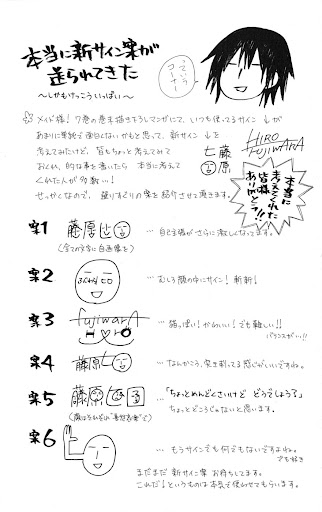 本当に新サイン案が
送られてきた
～しかもけっこういっぱい～
っていう
コーナー
☆メイド様！7巻の巻末描きおろしマンガにて、いつも使ってるサイン↓が
あまりに単純で面白くないかもと思って、新サイン↓を
考えてみたけど、皆もちょっと考えてみて
おくれ、的な事を書いたら 本当に考えて
くれた人が多数…！
せっかくなので、選りすぐりの案を紹介させて頂きます。
HIRO
FUJIWARA
藤原
ヒロ
本当に
考えてくれた
皆様
ありがとう!!
案1 藤原ヒロ
(全ての文字に自画像を)
… 自己主張がさらに激しくなってます。
案2 ふじわらヒロ
… むしろ顔の中にサイン！斬新！
案3 fujiwarA
HirO
… 猫っぽい！かわいい！でも難しい!!
バランスが…!!
案4 藤原ヒロ
… なんかこう、気を割ってる感じがいいですね。
案5 藤原ヒロ
(顔はそれぞれ"喜怒哀楽"で)
… 「ちょっとめんどくさいけど どうでしょう？」
ちょっとどころじゃないと思います。
案6
… もうサインでも何でもないですよね。
でも好き
まだまだ 新サイン案 お待ちしてます。
これだ！というものは本気で使わせてもらいます。